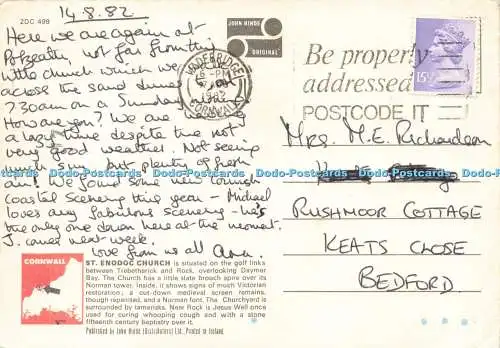 14.8.82
2DC 498
Here we are again at
Polzeath, not far from this
little church which we
across the sand dunes
7.30am on a Sunday
How are you? We are
a lazy time despite the not
very good weather. Not seeing
much sun but plenty of fresh
air! We found some new Cornish
coastal scenery this year – Michael
loves any fabulous scenery – he's
the only one down here at the moment.
J. comes next week.
love from us all Ann.
JOHN HINDE
ORIGINAL
WADEBRIDGE
6-PM
1982
CORNWALL
Be properly
addressed
POSTCODE IT
15½P
Mrs. M.E. Richardson
RUSHMOOR COTTAGE
KEATS CLOSE
BEDFORD.
CORNWALL
ST. ENODOC CHURCH is situated on the golf links
between Trebetherick and Rock, overlooking Daymer
Bay. The Church has a little slate broach spire over its
Norman tower. Inside, it shows signs of much Victorian
restoration; a cut-down medieval screen remains,
though repainted, and a Norman font. The Churchyard is
surrounded by tamarisks. Near Rock is Jesus Well once
used for curing whooping cough and with a stone
fifteenth century baptistry over it.
Published by John Hinde (Distributors) Ltd. Printed in Ireland.
Dodo-Postcards Dodo-Postcards Dodo-Postcards Dodo-Postcards Dodo-Postcards